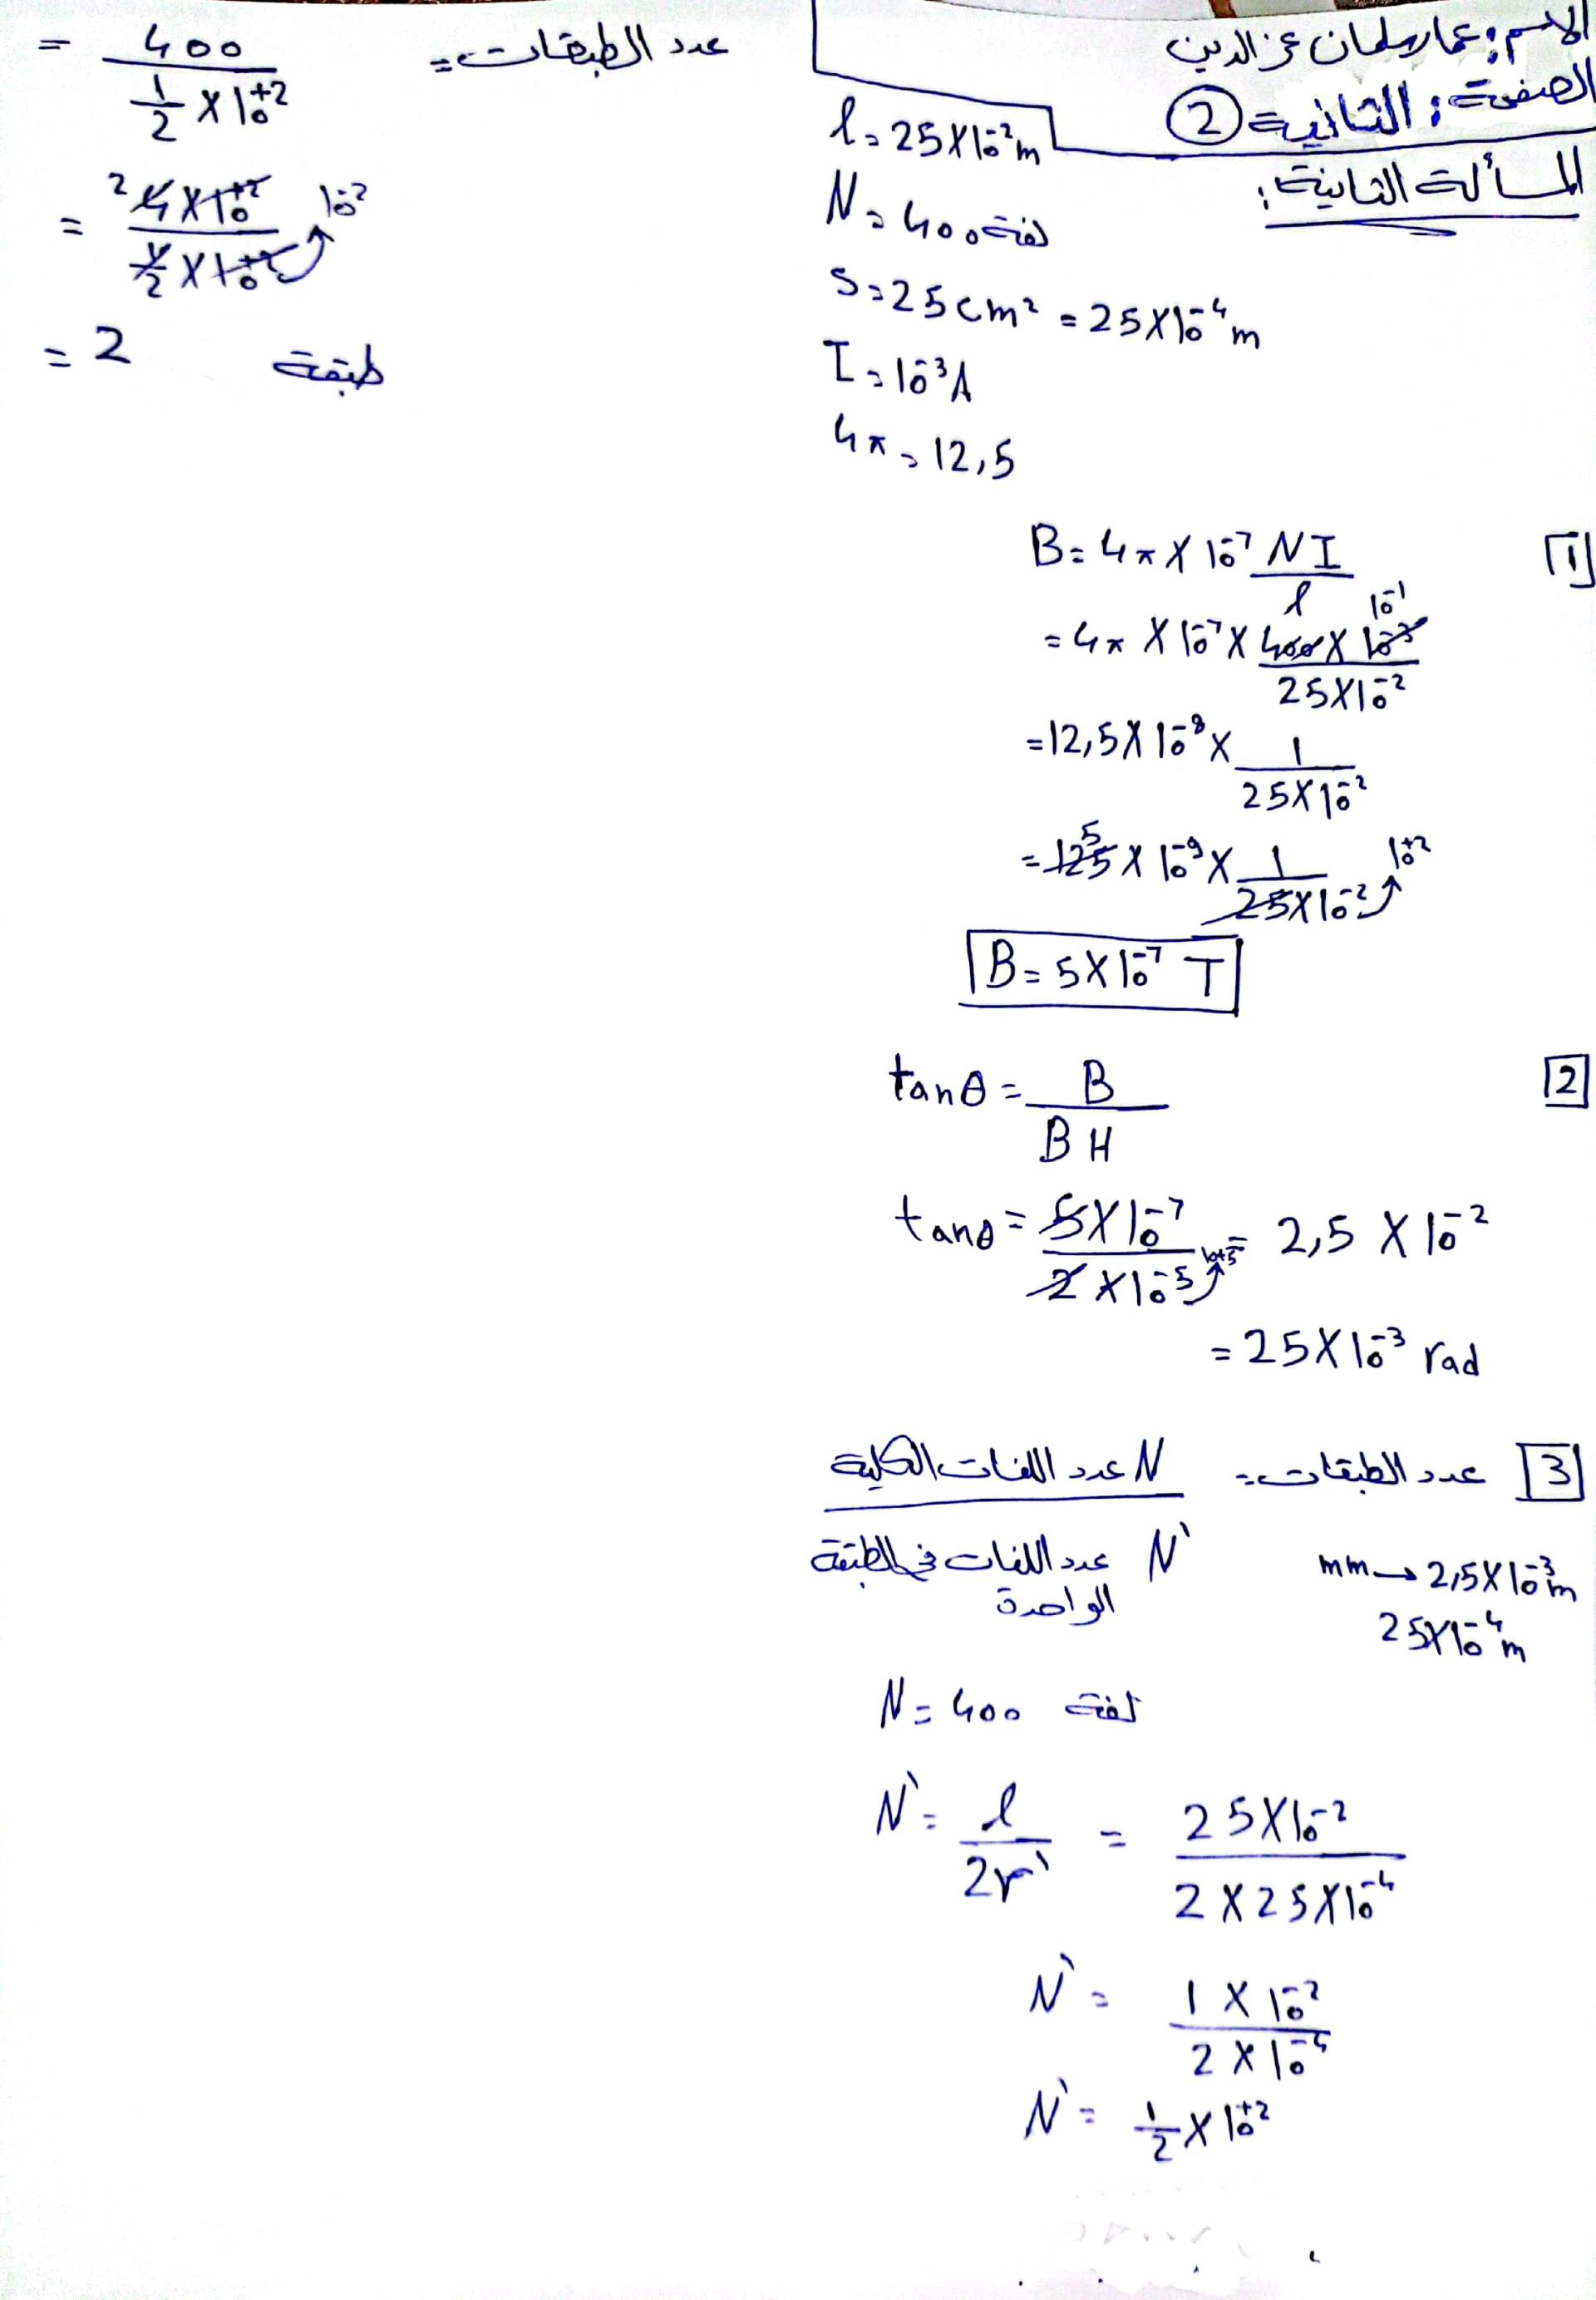 الاسم: عمار سلمان عز الدين
الصفحة: الثانية 2
المسألة الثانية:
l = 25×10⁻² m
N = 400 لفة
S = 25 cm² = 25×10⁻⁴ m
I = 10⁻³ A
4π = 12,5
1
B = 4π × 10⁻⁷ NI / l
= 4π × 10⁻⁷ × 400 × 10⁻³ / 25×10⁻² 10⁻¹
= 12,5 × 10⁻⁸ × 1 / 25×10⁻²
= 125 × 10⁻⁹ × 1 / 25×10⁻² 5 10⁺²
B = 5×10⁻⁷ T
2
tanθ = B / BH
tanθ = 5×10⁻⁷ / 2×10⁻⁵ 10⁺⁵ = 2,5 × 10⁻²
= 25×10⁻³ rad
3 عدد الطبقات = N عدد اللفات الكلية / N` عدد اللفات في الطبقة الواحدة
mm → 2,5×10⁻³ m
25×10⁻⁴ m
N = 400 لفة
N` = l / 2r` = 25×10⁻² / 2×25×10⁻⁴
N` = 1 × 10⁻² / 2 × 10⁻⁴
N` = 1/2 × 10⁺²
عدد الطبقات = = 400 / 1/2 × 10⁺²
= 4×10⁺² / 1/2 × 10⁺² 2 10⁻²
= 2 طبقة